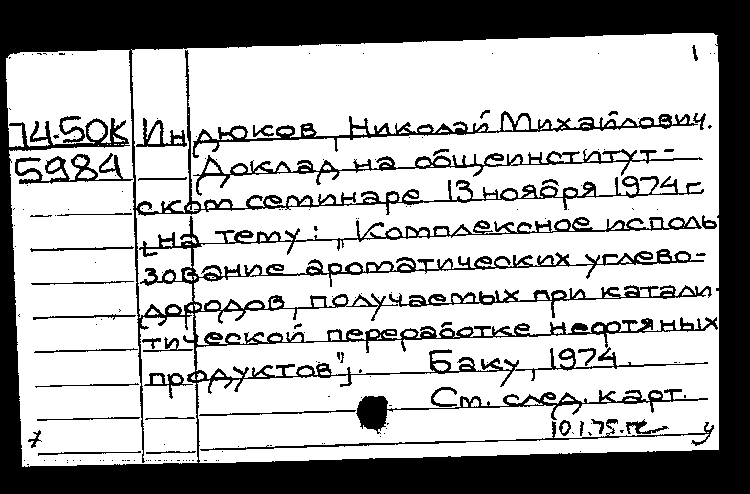 1
74-50К Индюков, Николай Михайлович.
5984 Доклад на общеинститут-
ском семинаре 13 ноября 1974 г.
[на тему: „Комплексное исполь
зование ароматических углево-
дородов, получаемых при катали-
тической переработке нефтяных
продуктов"]. Баку, 1974.
См. след. карт.
10.1.75.
у